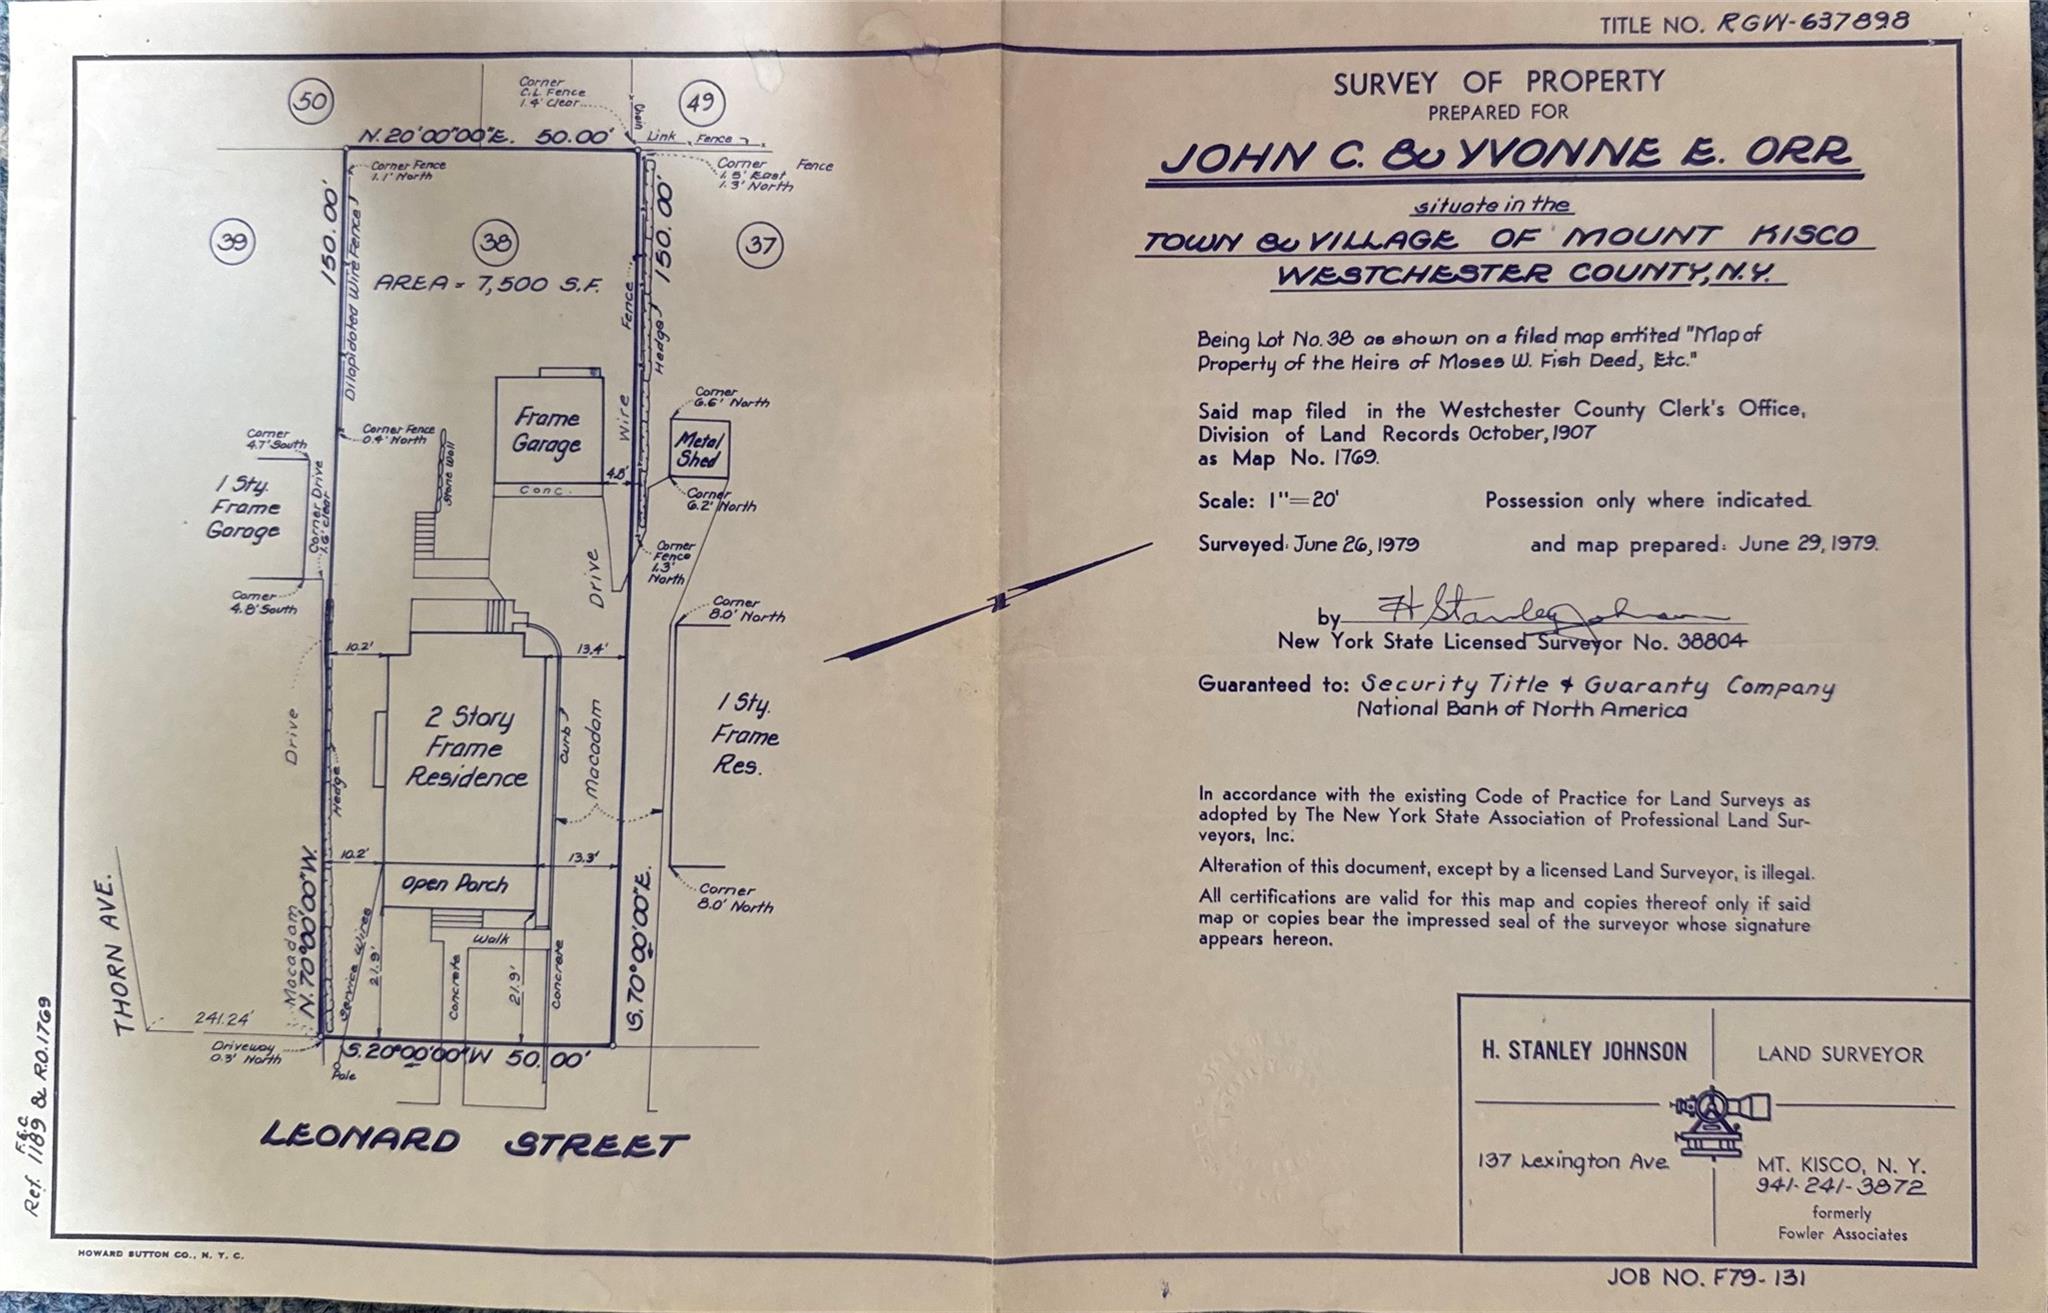 TITLE NO. RGW-637898
50
Corner
C.L. Fence
1.4' Clear
49
Chain
Link Fence
N. 20°00'00"E. 50.00'
Corner Fence
1.1' North
Corner Fence
1.5' East
1.3' North
150.00'
150.00'
39
38
37
AREA = 7,500 S.F.
Dilapidated Wire Fence
Wire Fence
Hedge
Frame
Garage
4.8'
Conc.
Corner
6.6' North
Metal
Shed
Corner
6.2' North
Corner Fence
0.4' North
Stone Wall
Corner
4.7' South
1 Sty.
Frame
Garage
Corner Drive
1.6' Clear
Corner
4.8' South
Corner
Fence
1.3'
North
Drive
Corner
8.0' North
10.2'
13.4'
Drive
2 Story
Frame
Residence
Curb
Macadam
1 Sty.
Frame
Res.
Hedge
10.2'
13.3'
Open Porch
Corner
8.0' North
THORN AVE.
Macadam
N. 70°00'00"W.
Service Wires
21.9'
Walk
Concrete
21.9'
Concrete
S. 70°00'00"E.
241.24'
Driveway
0.3' North
S. 20°00'00"W 50.00'
Pole
LEONARD STREET
Ref. F.&C. 1189 & R.O. 1769
HOWARD SUTTON CO., N. Y. C.
SURVEY OF PROPERTY
PREPARED FOR
JOHN C. & YVONNE E. ORR
situate in the
TOWN & VILLAGE OF MOUNT KISCO
WESTCHESTER COUNTY, N.Y.
Being Lot No. 38 as shown on a filed map entited "Map of
Property of the Heirs of Moses W. Fish Deed, Etc."
Said map filed in the Westchester County Clerk's Office,
Division of Land Records October, 1907
as Map No. 1769.
Scale: 1"=20' Possession only where indicated.
Surveyed: June 26, 1979 and map prepared: June 29, 1979.
by H Stanley Johnson
New York State Licensed Surveyor No. 38804
Guaranteed to: Security Title & Guaranty Company
National Bank of North America
In accordance with the existing Code of Practice for Land Surveys as
adopted by The New York State Association of Professional Land Sur-
veyors, Inc.
Alteration of this document, except by a licensed Land Surveyor, is illegal.
All certifications are valid for this map and copies thereof only if said
map or copies bear the impressed seal of the surveyor whose signature
appears hereon.
H. STANLEY JOHNSON LAND SURVEYOR
137 Lexington Ave. MT. KISCO, N. Y.
941-241-3872
formerly
Fowler Associates
JOB NO. F79-131